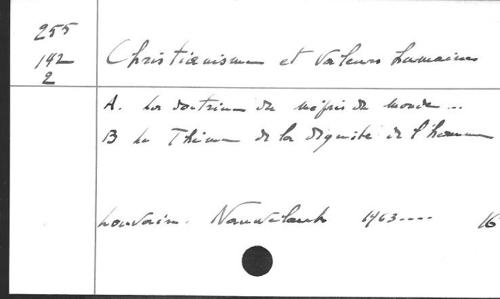 255
142
2
Christianisme et valeurs humaines
A. La doctrine du mépris du monde ...
B Le Thème de la dignité de l'homme
Louvain. Nauwelaerts 1963.... 16